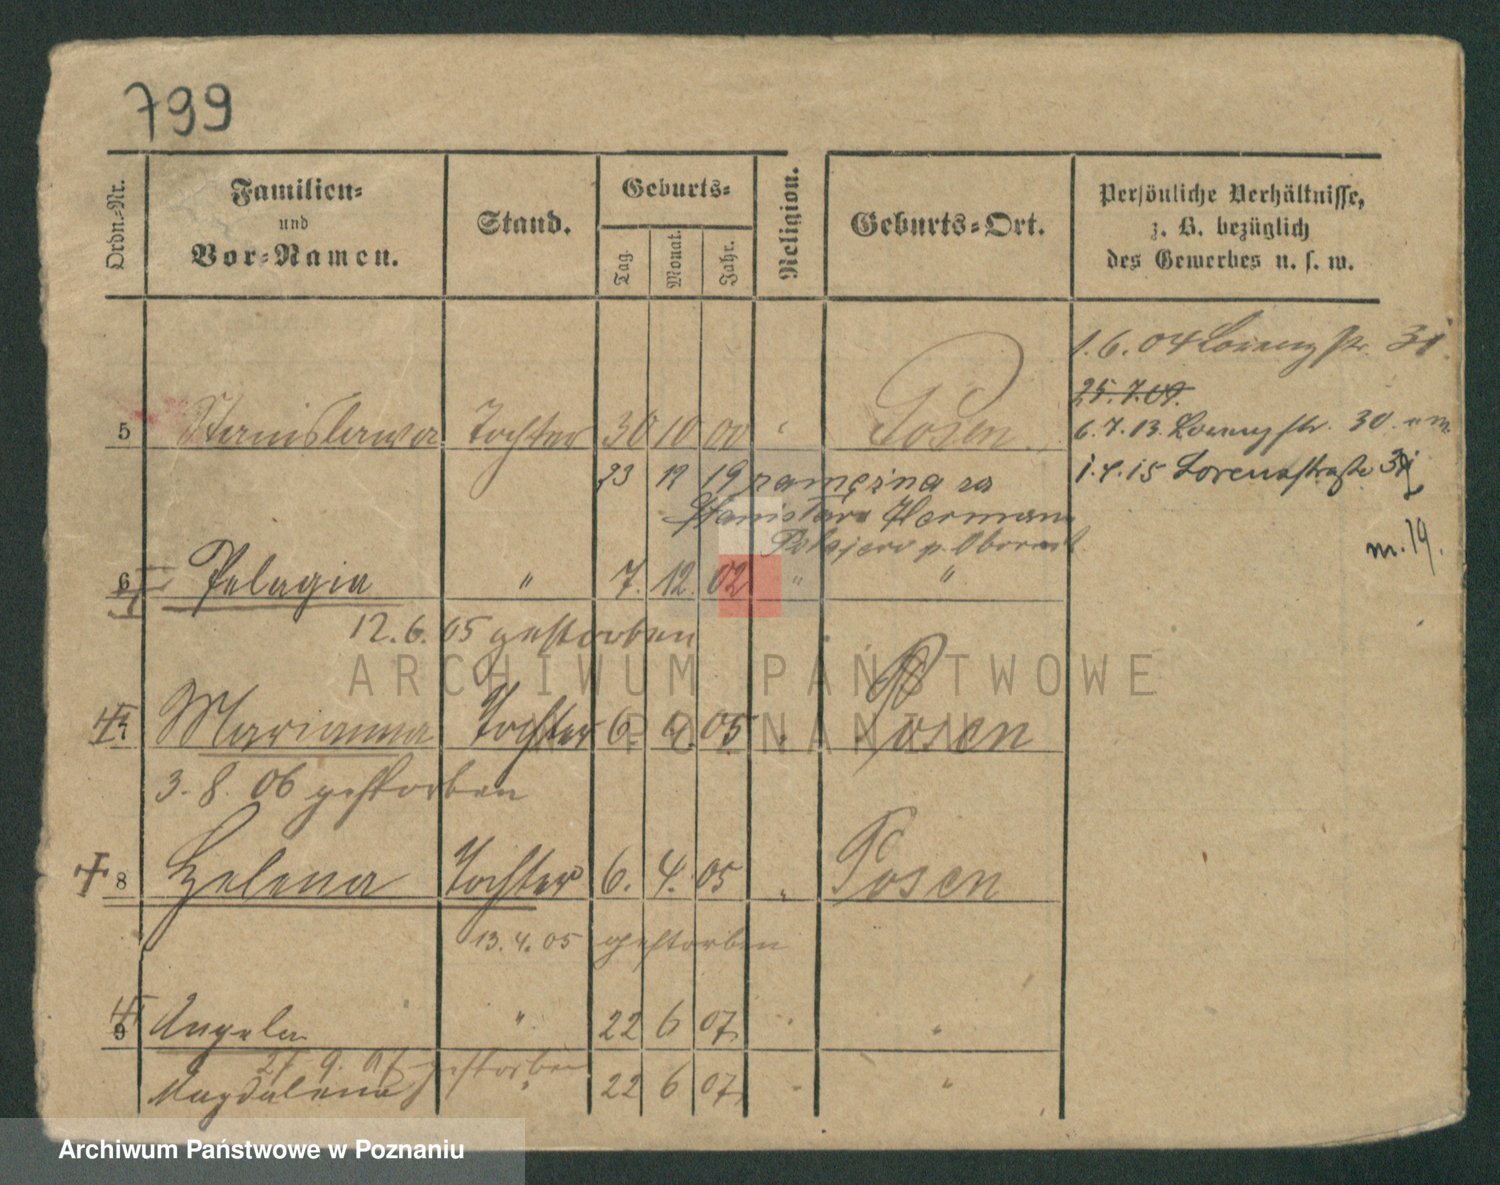 799
Ordn.-Nr.
Familien-
und
Vor-Namen.
Stand.
Geburts-
Tag.
Monat.
Jahr.
Religion.
Geburts-Ort.
Persönliche Verhältnisse,
z. B. bezüglich
des Gewerbes u. s. w.
1.6.04 31
25.7.09.
5 Stanislawa Tochter 30 10 00 " Posen
6.7.13. 30.
23 12 19 zamężna za
1.4.15 Lorenzstraße
Stanisława Hermann
m. 19.
6 Pelagia " 7. 12. 02 " "
12.6.05 gestorben
7 Marianna Tochter 6. 4. 05 " Posen
3.8.06 gestorben
8 Helena Tochter 6. 4. 05 " Posen
13.4.05 gestorben
9 Angela " 22 6 07 " "
gestorben
Magdalena " 22 6 07 " "
ARCHIWUM PAŃSTWOWE
W POZNANIU
Archiwum Państwowe w Poznaniu